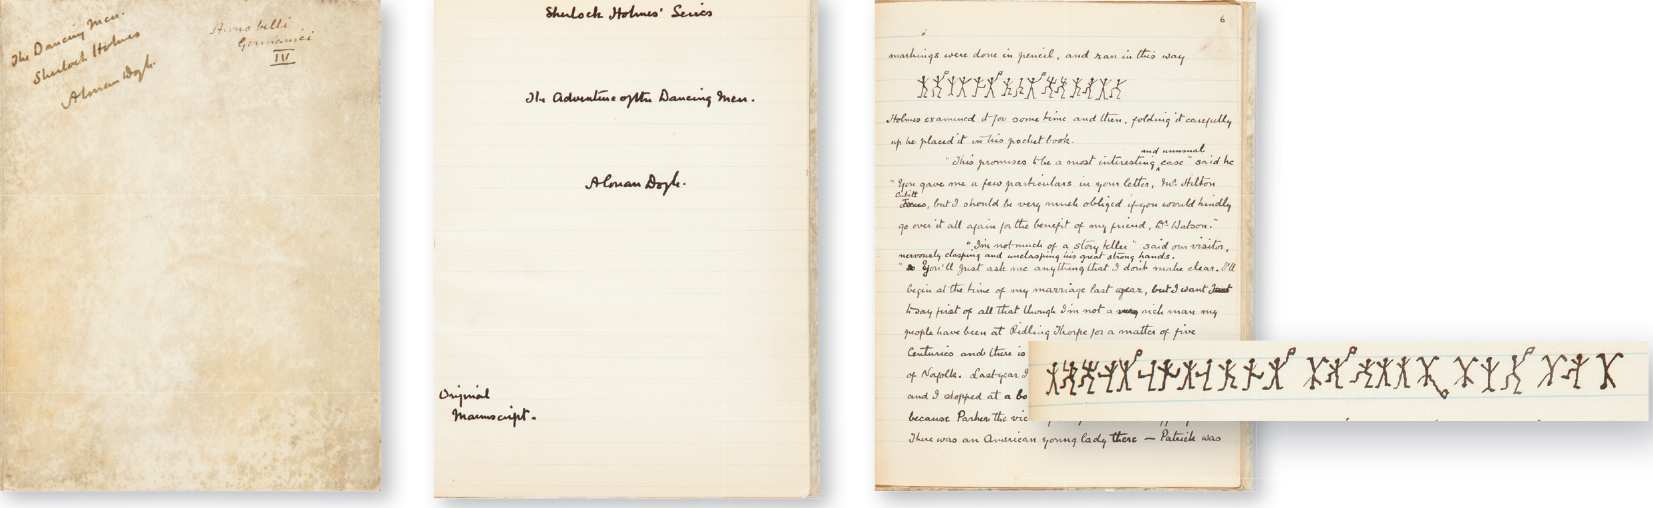 The Dancing Men.
Sherlock Holmes
A Conan Doyle
Anno belli
Germanici
IV
Sherlock Holmes' Series
The Adventure of the Dancing Men.
A Conan Doyle.
Original
Manuscript.
6
markings were done in pencil, and ran in this way
Holmes examined it for some time and then, folding it carefully
up he placed it in his pocket book.
and unusual
"This promises to be a most interesting case" said he
"You gave me a few particulars in your letter, Mr. Hilton
Cubitt
, but I should be very much obliged if you would kindly
go over it all again for the benefit of my friend, Dr. Watson."
"I'm not much of a story teller" said our visitor,
nervously clasping and unclasping his great strong hands.
"You'll just ask me anything that I don't make clear. I'll
begin at the time of my marriage last year, but I want
to say first of all that though I'm not a very rich man my
people have been at Ridling Thorpe for a matter of five
Centuries and there is
of Norfolk. Last year I
and I stopped at a bo
because Parker the vic
There was an American young lady there — Patrick was